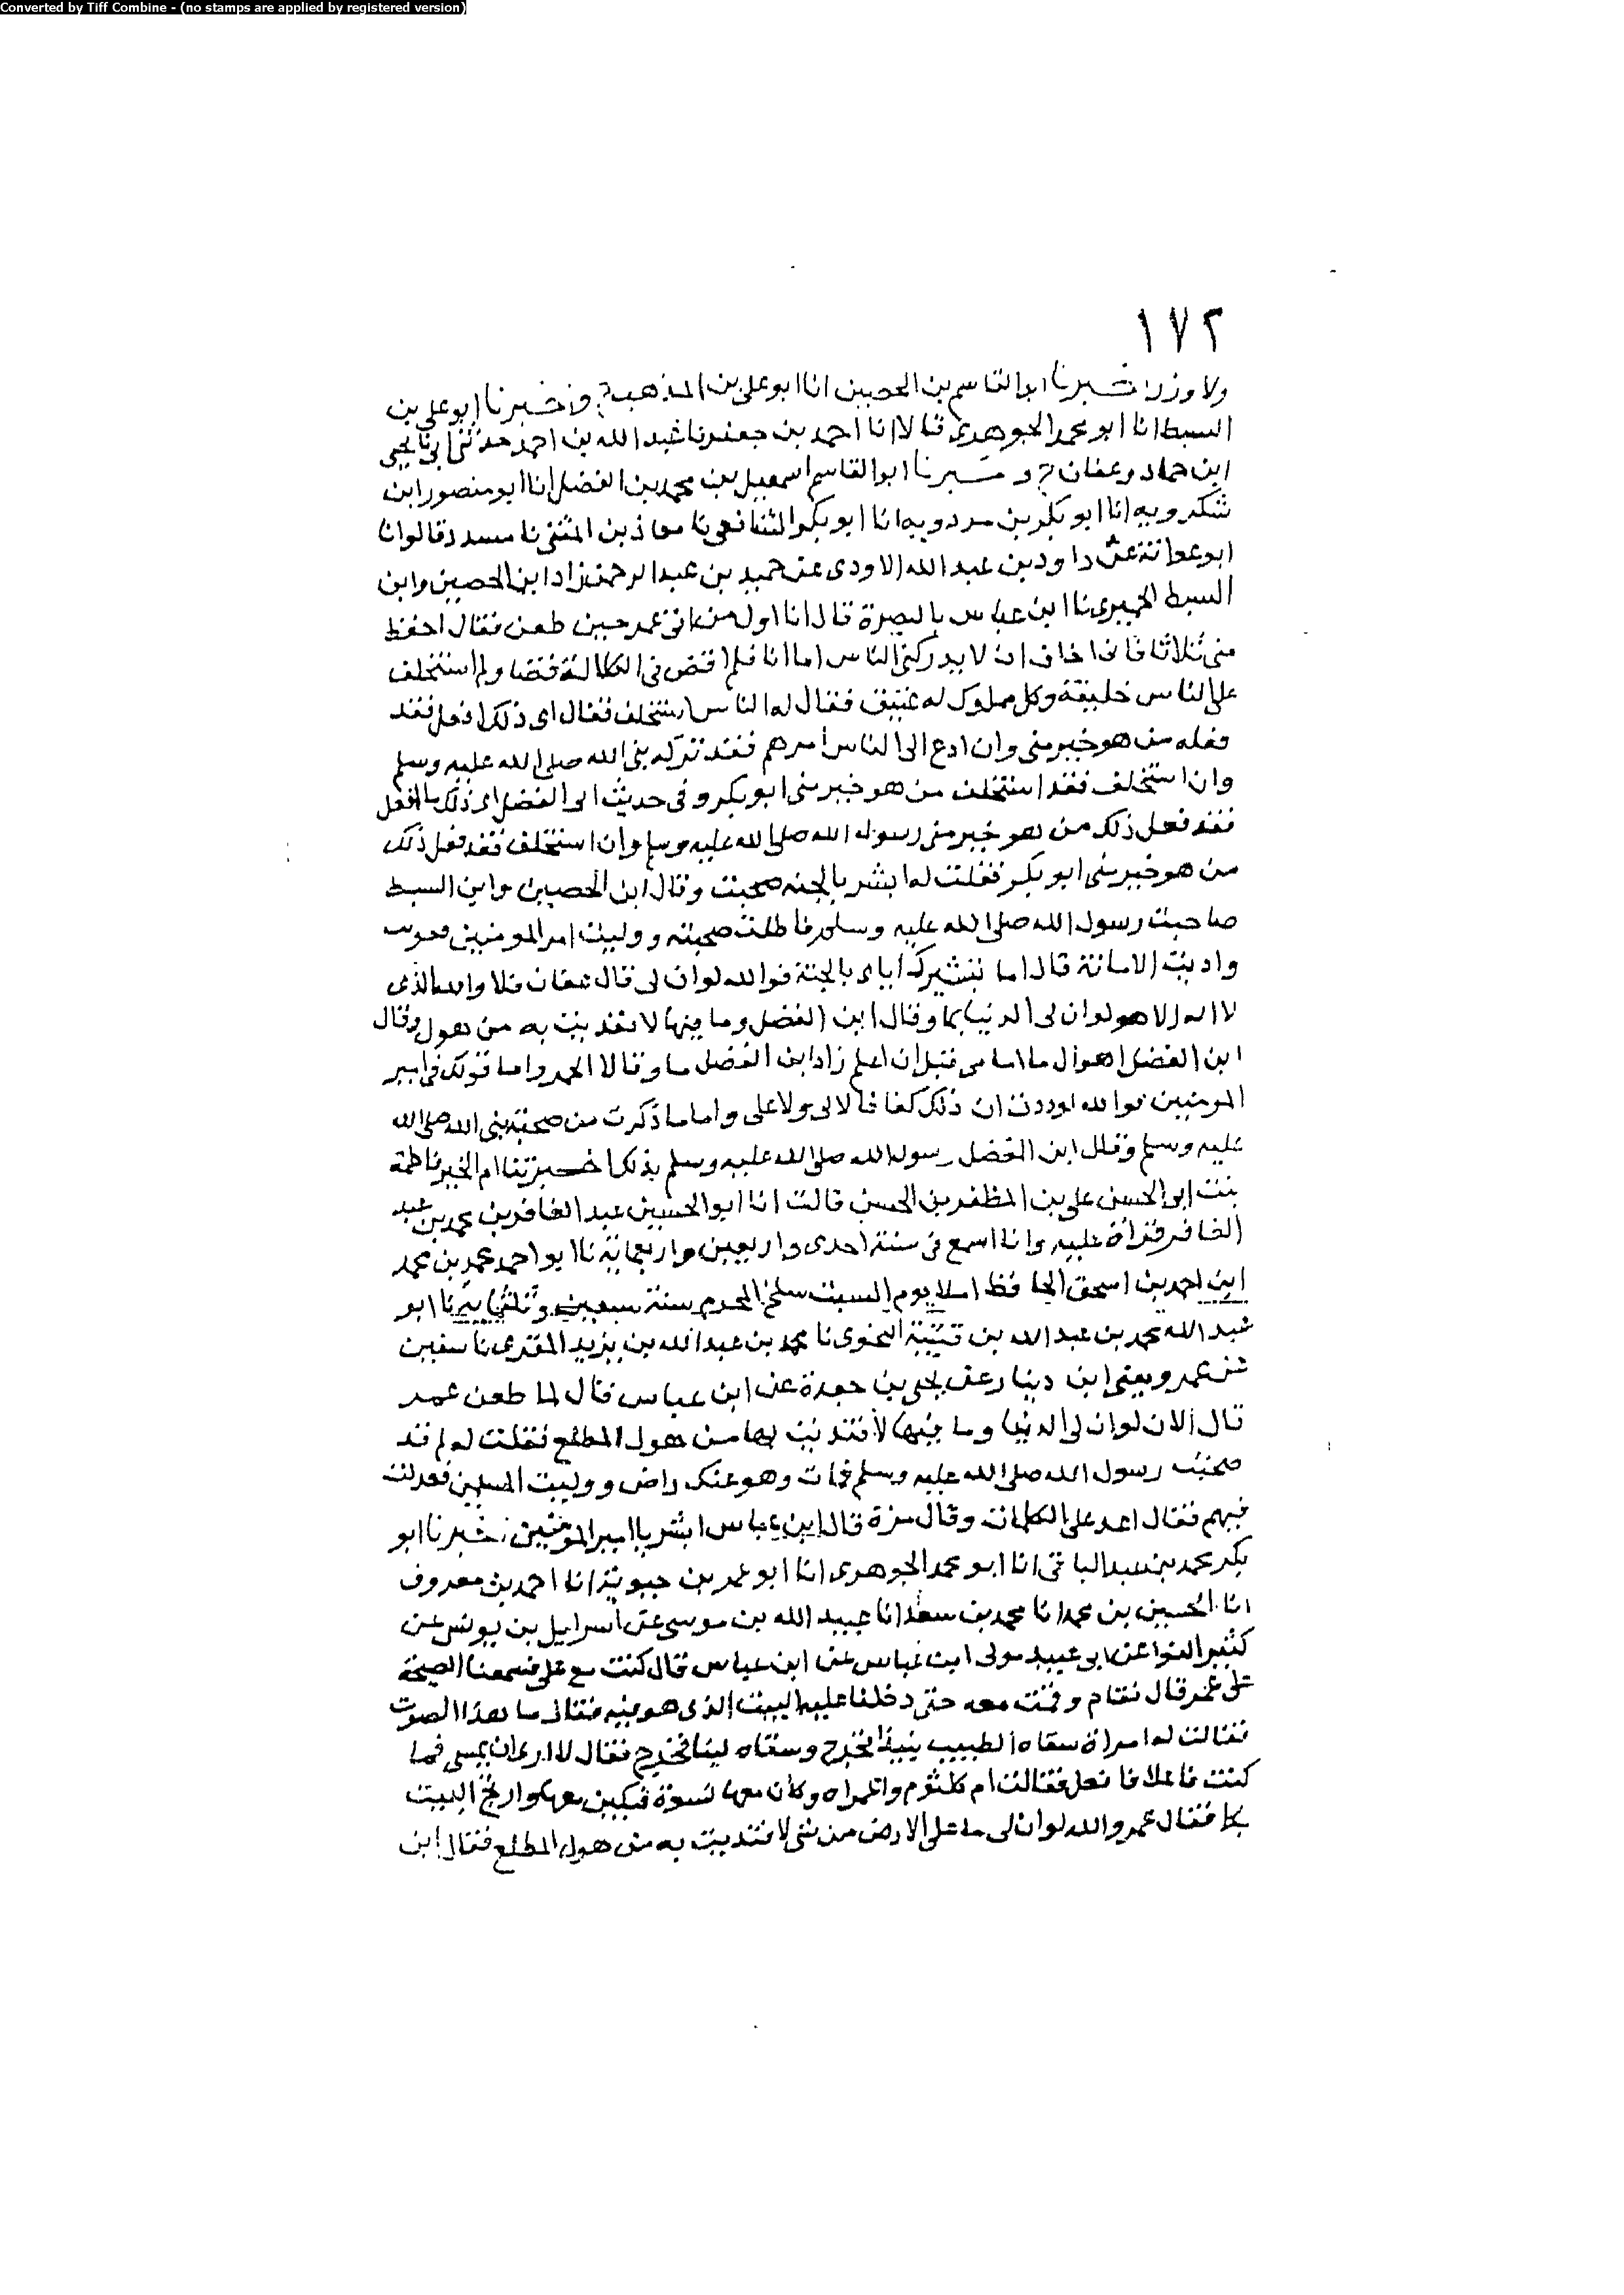 Converted by Tiff Combine - (no stamps are applied by registered version)
١٧٢
ولا وزرا خبرنا ابو القاسم بن الحصين انا ابو على بن المذهب ح واخبرنا ابو على بن
السبط انا ابو محمد الجوهرى قالا انا احمد بن جعفر نا عبد الله بن احمد حدثنى ابى نا يحيى
ابن حماد وعفان ح و خبرنا ابو القاسم اسمعيل بن محمد بن الفضل انا ابو منصور ابن
شكرويه انا ابو بكر بن مردويه انا ابو بكر الشافعى نا معاذ بن المثنى نا مسدد قالوا نا
ابو عوانة عن داود بن عبد الله الاودى عن حميد بن عبد الرحمن زاد ابن الحصين وابن
السبط الحميرى نا ابن عباس بالبصرة قال انا اول من اتى عمر حين طعن فقال احفظ
منى ثلاثا فانى اخاف ان لا يدركنى الناس اما انا فلم اقض فى الكلالة قضا ولم استخلف
على الناس خليفة وكل مملوك له عتيق فقال له الناس استخلف فقال اى ذلك افعل فقد
فعله من هو خير منى وان ادع الى الناس امرهم فقد تركه نبى الله صلى الله عليه وسلم
وان استخلف فقد استخلف من هو خير منى ابو بكر وفى حديث ابى الفضل اى ذلك ما افعل
فقد فعل ذلك من هو خير منى رسول الله صلى الله عليه وسلم وان استخلف فقد فعل ذلك
من هو خير منى ابو بكر فقلت له ابشر بالجنه صحبت وقال ابن الحصين وابن السبط
صاحبت رسول الله صلى الله عليه وسلم فاطلت صحبته ووليت امر المومنين فقويت
واديت الامانة قال اما تبشيرك اياى بالجنة فوالله لو ان لى قال عفان فلا والله الذى
لا اله الا هو لو ان لى الدنيا بما وقال ابن الفضل وما فيها لافتديت به من هول وقال
ابن الفضل اهوال ما امامى قبل ان اعلم زاد ابن الفضل ما وقالا الخبر واما قولك فى امير
المومنين فوالله لوددت ان ذلك كفافا لا لى ولا على واما ما ذكرت من صحبة نبى الله صلى الله
عليه وسلم وقال ابن الفضل رسول الله صلى الله عليه وسلم فذلك اخبرتنا ام الخير فاطمة
بنت ابى الحسن على بن المظفر بن الحسن قالت انا ابو الحسين عبد الغافر بن محمد بن عبد
الغافر قراة عليه وانا اسمع فى سنة احدى واربعين واربعماية نا ابو احمد محمد بن محمد
ابن احمد بن اسحق الحافظ املا يوم السبت سلخ المحرم سنة سبعين وثلثماية نا ابو
عبد الله محمد بن عبد الله بن قتيبة النحوى نا محمد بن عبد الله بن يزيد المقرى نا سفين
عن عمرو يعنى ابن دينار عن يحيى بن جعدة عن ابن عباس قال لما طعن عمر
قال الان لو ان لى الدنيا وما فيها لافتديت بها من هول المطلع فقلت له لم قد
صحبت رسول الله صلى الله عليه وسلم فمات وهو عنك راض ووليت المسلمين فعدلت
فيهم فقال اعد على الكلمات وقال مرة قال ابن عباس ابشر يا امير المومنين خبرنا ابو
بكر محمد بن عبد الباقى انا ابو محمد الجوهرى انا ابو عمر بن حيوية انا احمد بن معروف
انا الحسين بن محمد انا محمد بن سعد انا عبيد الله بن موسى عن اسرايل بن يونس عن
كثير النوا عن ابى عبيد مولى ابن عباس عن ابن عباس قال كنت مع على فسمعنا الصيحة
على عمر قال فقام وقمت معه حتى دخلنا عليه البيت الذى هو فيه فقال ما هذا الصوت
فقالت له امراة سقاه الطبيب نبيذا فخرج وسقاه لبنا فخرج فقال لا ارى ان يمسى فما
كنت فاعلا فافعل فقالت ام كلثوم واعمراه وكان معها نسوة فبكين معها وارتج البيت
بكا فقال عمر والله لو ان لى ما على الارض من شى لافتديت به من هول المطلع فقال ابن